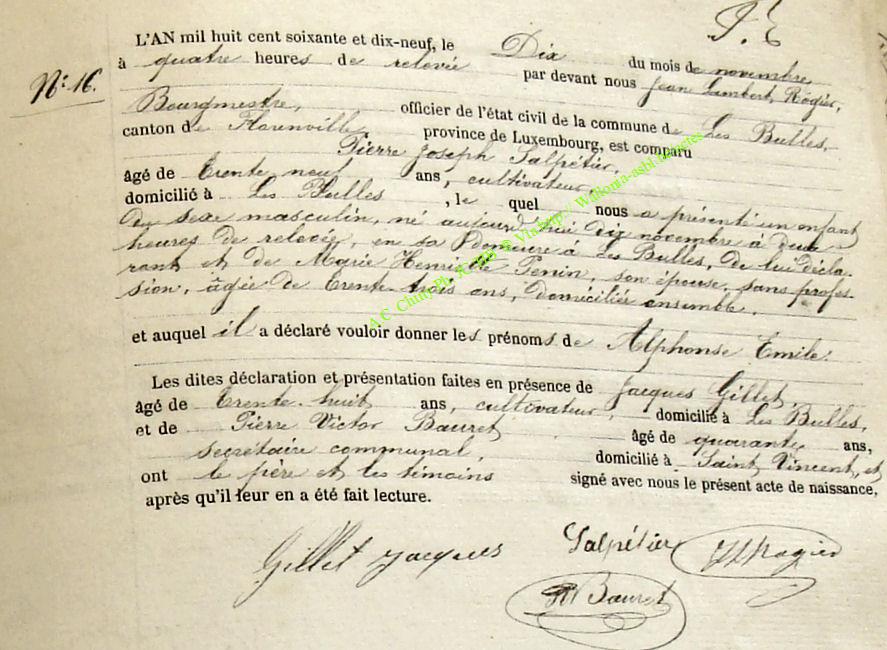 L'AN mil huit cent soixante et dix-neuf, le Dix du mois de novembre
à quatre heures de relevée par devant nous Jean Lambert Rogier,
N° 16.
Bourgmestre, officier de l'état civil de la commune de Les Bulles,
canton de Florenville province de Luxembourg, est comparu
Pierre Joseph Salpétier,
âgé de trente neuf ans, cultivateur,
domicilié à Les Bulles, le quel nous a présenté un enfant
du sexe masculin, né aujourd'hui dix novembre à deux
heures de relevée, en sa demeure à Les Bulles, de lui décla-
rant et de Marie Henriette Penin, son épouse, sans profes-
sion, âgée de trente trois ans, domiciliés ensemble.
et auquel il a déclaré vouloir donner les prénoms de Alphonse Emile.
Les dites déclaration et présentation faites en présence de Jacques Gillet
âgé de trente huit ans, cultivateur, domicilié à Les Bulles,
et de Pierre Victor Bauret âgé de quarante ans,
secrétaire communal, domicilié à Saint Vincent, et
ont le père et les témoins signé avec nous le présent acte de naissance,
après qu'il leur en a été fait lecture.
Gillet Jacques Salpétier JL Rogier
PV Bauret